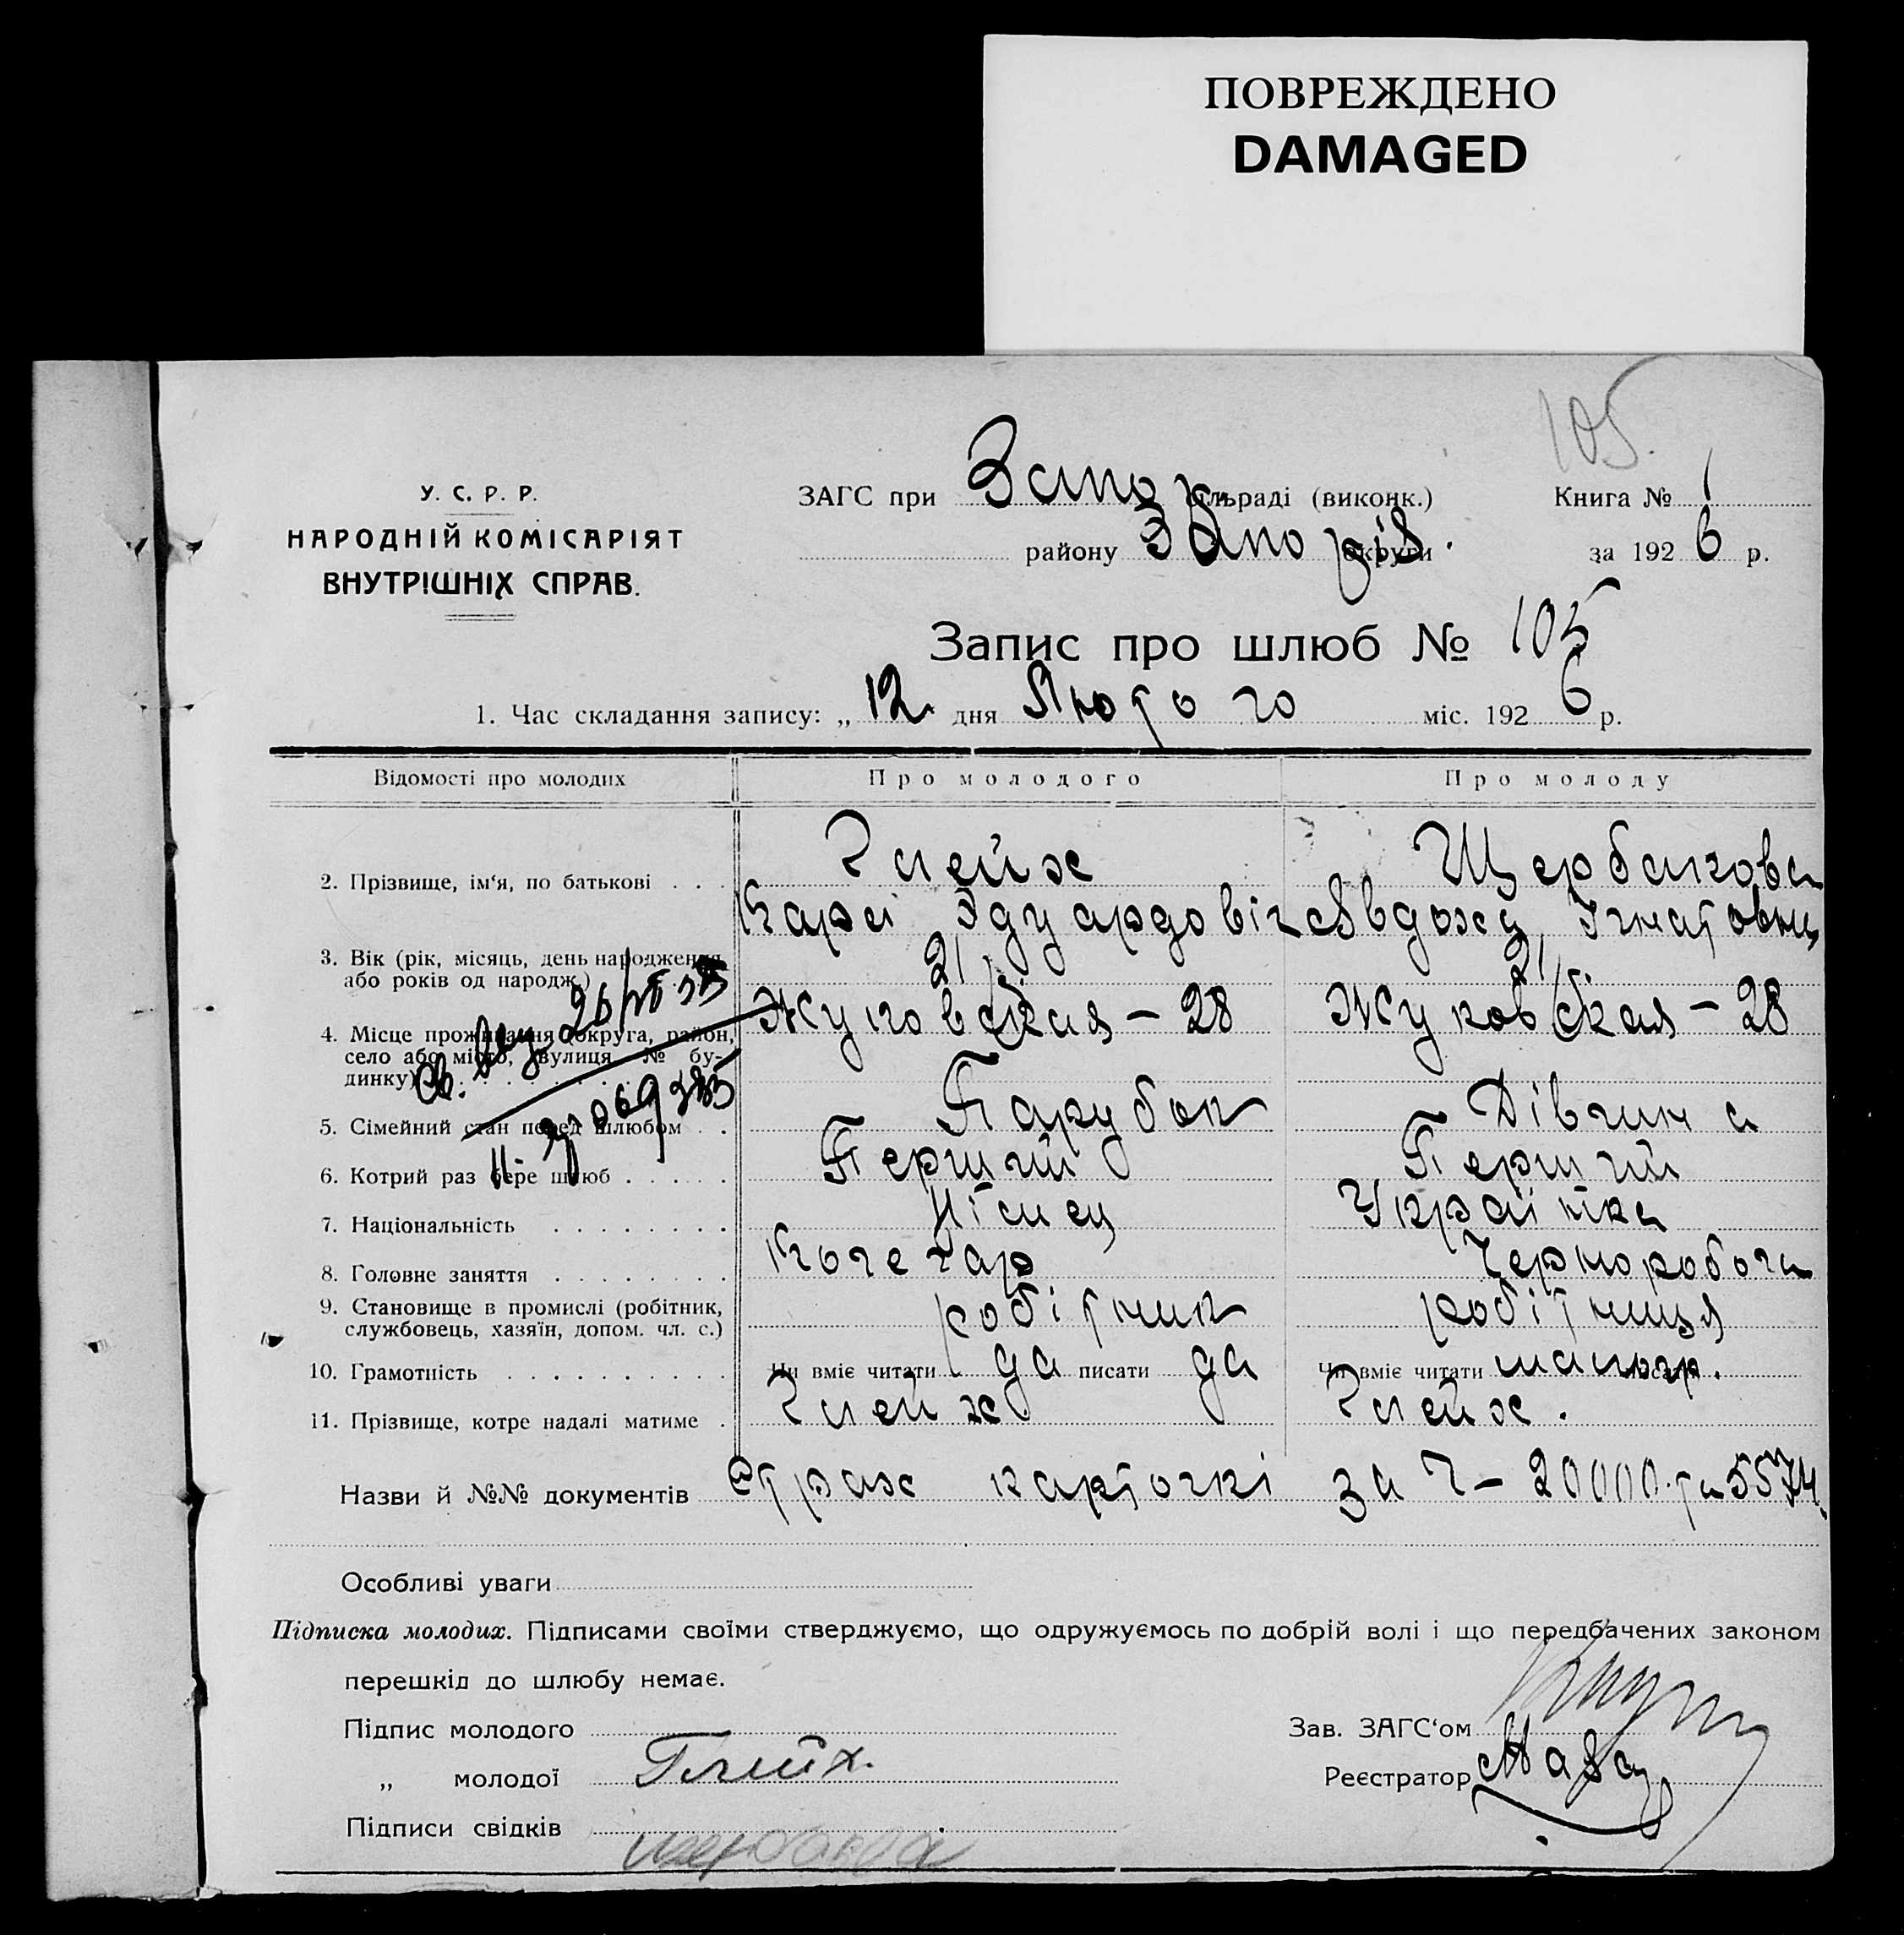 ПОВРЕЖДЕНО
DAMAGED
105.
У. С. Р. Р.
НАРОДНІЙ КОМІСАРІЯТ
ВНУТРІШНІХ СПРАВ.
ЗАГС при Запор ільраді (виконк.) Книга № 1
району Запоріз. округи за 1926 р.
Запис про шлюб № 105
1. Час складання запису: „ 12 дня Лютого міс. 1926 р.
Відомості про молодих Про молодого Про молоду
2. Прізвище, ім'я, по батькові Глейх Щербакова
Карл Едуардовіч Явдоха Ігнатовна
3. Вік (рік, місяць, день народження
або років од народж.) 21 21
4. Місце проживання (округа, район, Жуковская – 28 Жуковская – 28
село або місто, вулиця № бу-
динку)
5. Сімейний стан перед шлюбом Парубок Дівчина
6. Котрий раз бере шлюб Перший Перший
7. Національність Німец Українка
8. Головне заняття Кочегар Чернороботча
9. Становище в промислі (робітник, робітник робітниця
службовець, хазяїн, допом. чл. с.)
10. Грамотність Чи вміє читати да писати да Чи вміє читати малогр. писати
11. Прізвище, котре надалі матиме Глейх Глейх.
Назви й №№ документів Страх карточкі за Ч – 20000 та 5574
Особливі уваги
Підписка молодих. Підписами своїми стверджуємо, що одружуємось по добрій волі і що передбачених законом
перешкід до шлюбу немає.
Підпис молодого Зав. ЗАГС'ом
„ молодої Глейх. Реєстратор
Підписи свідків